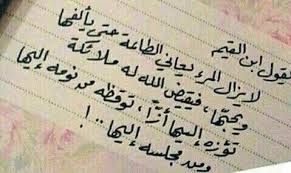 يقول ابن القيم
لا يزال المرء يعاني الطاعة حتى يألفها
ويحبها، فيقيض الله له ملائكة
تؤزه إليها أزًّا، توقظه من نومه إليها
ومن مجلسه إليها..!